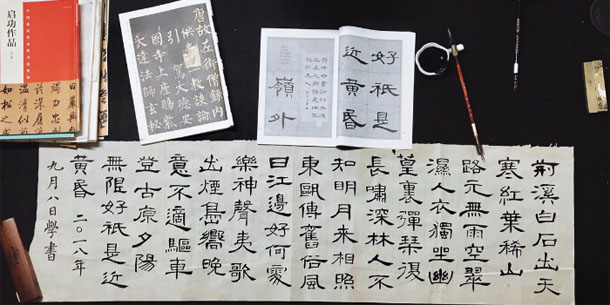 启功作品
竭力忠
溫凊似
如松之
唐故左街僧錄內
供奉三教談論
引駕大德安
國寺上座賜紫
大達法師玄秘
好祇是
近黃昏
嶺外
荊溪白石出天
寒紅葉稀山
路元無雨空翠
濕人衣獨坐幽
篁裏彈琴復
長嘯深林人不
知明月來相照
東甌傳舊俗風
日江邊好何處
樂神聲夷歌
出煙島嚮晚
意不適驅車
登古原夕陽
無限好祇是近
黃昏 二〇一八年
九月八日學書